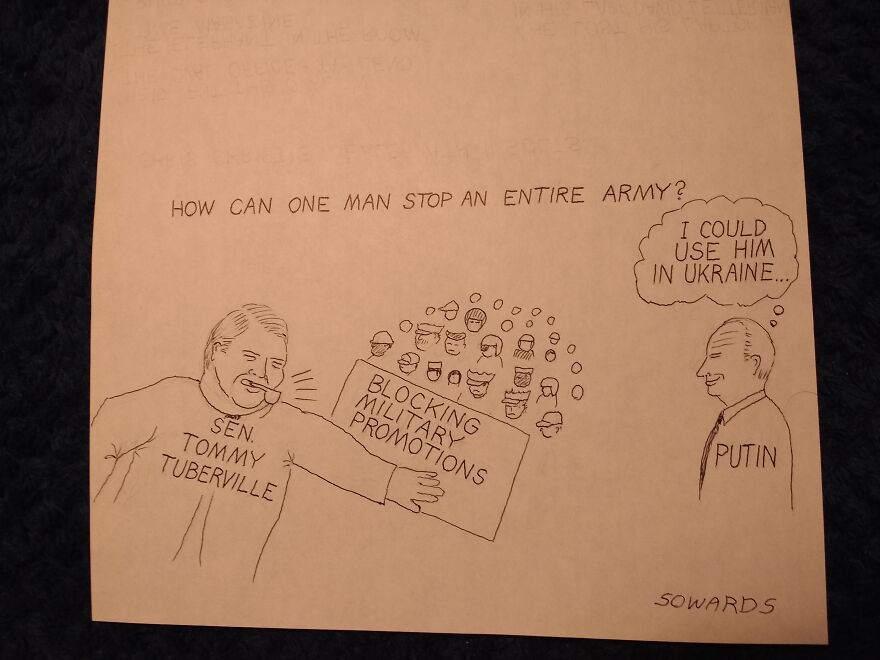 HOW CAN ONE MAN STOP AN ENTIRE ARMY?
I COULD
USE HIM
IN UKRAINE...
BLOCKING
MILITARY
PROMOTIONS
SEN.
TOMMY
TUBERVILLE
PUTIN
SOWARDS